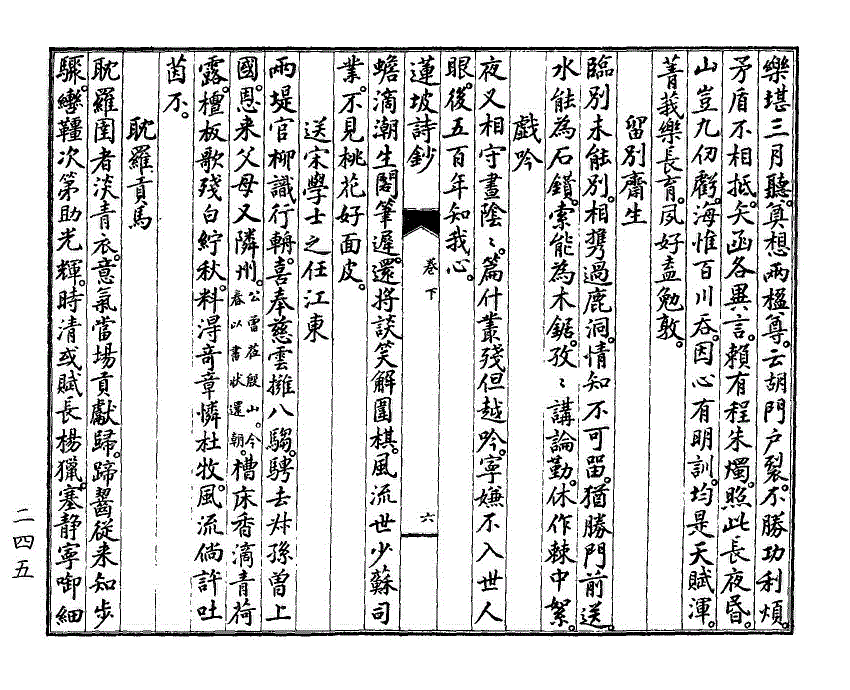 樂堪三月聽。莫想兩楹尊。云胡門户裂。不勝功利煩。
矛盾不相抵。矢函各異言。賴有程朱燭。照此長夜昏。
山豈九仞虧。海惟百川吞。因心有明訓。均是天賦渾。
菁莪樂長育。夙好盍勉敦。
留別齋生
臨別未能別。相携過鹿洞。情知不可留。猶勝門前送。
水能為石鑽。索能為木鋸。孜〻講論勤。休作棘中絮。
戲吟
夜叉相守晝陰〻。篇什叢殘但越吟。寧嫌不入世人
眼。後五百年知我心。
蓮坡詩鈔 卷下 六
蟾滴潮生閣筆遲。還將談笑解圍棋。風流世少蘇司
業。不見桃花好面皮。
送宋學士之任江東
兩堤官柳識行輈。喜奉慈雲擁八騶。騁去娤孫曾上
國。恩来父母又隣州。公雷莅殷山。今春以書狀還朝。槽床香滴青荷
露。檀板歌殘白紵秋。料得奇章憐杜牧。風流倘許吐
茵不。
耽羅貢馬
耽羅圉者淡青衣。意氣當場貢獻歸。蹄齧從来知步
驟。纓韁次第助光輝。時清或賦長楊獵。塞静寧啣細
二四五